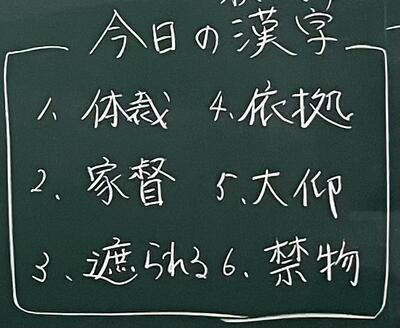 今日の漢字
1、体裁 4、依拠
2、家督 5、大仰
3、遮られる 6、禁物